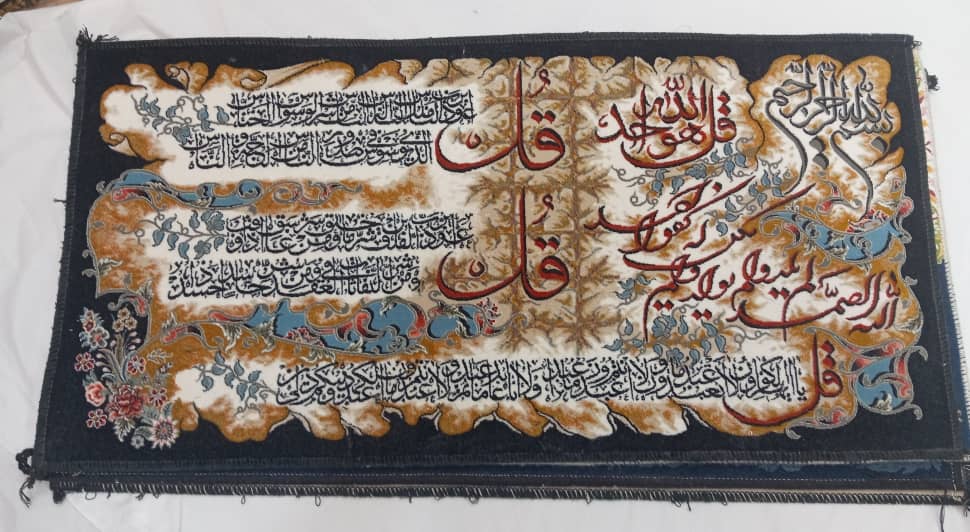 بسم الله الرحمن الرحيم
قل هو الله احد
الله الصمد لم يلد ولم يولد ولم يكن له كفوا احد
قل اعوذ برب الناس ملك الناس اله الناس من شر الوسواس الخناس
الذى يوسوس فى صدور الناس من الجنة و الناس
قل اعوذ برب الفلق من شر ما خلق و من شر غاسق اذا وقب
و من شر النفاثات فى العقد و من شر حاسد اذا حسد
قل يا ايها الكافرون لا اعبد ما تعبدون ولا انتم عابدون ما اعبد ولا انا عابد ما عبدتم ولا انتم عابدون ما اعبد لكم دينكم ولى دين